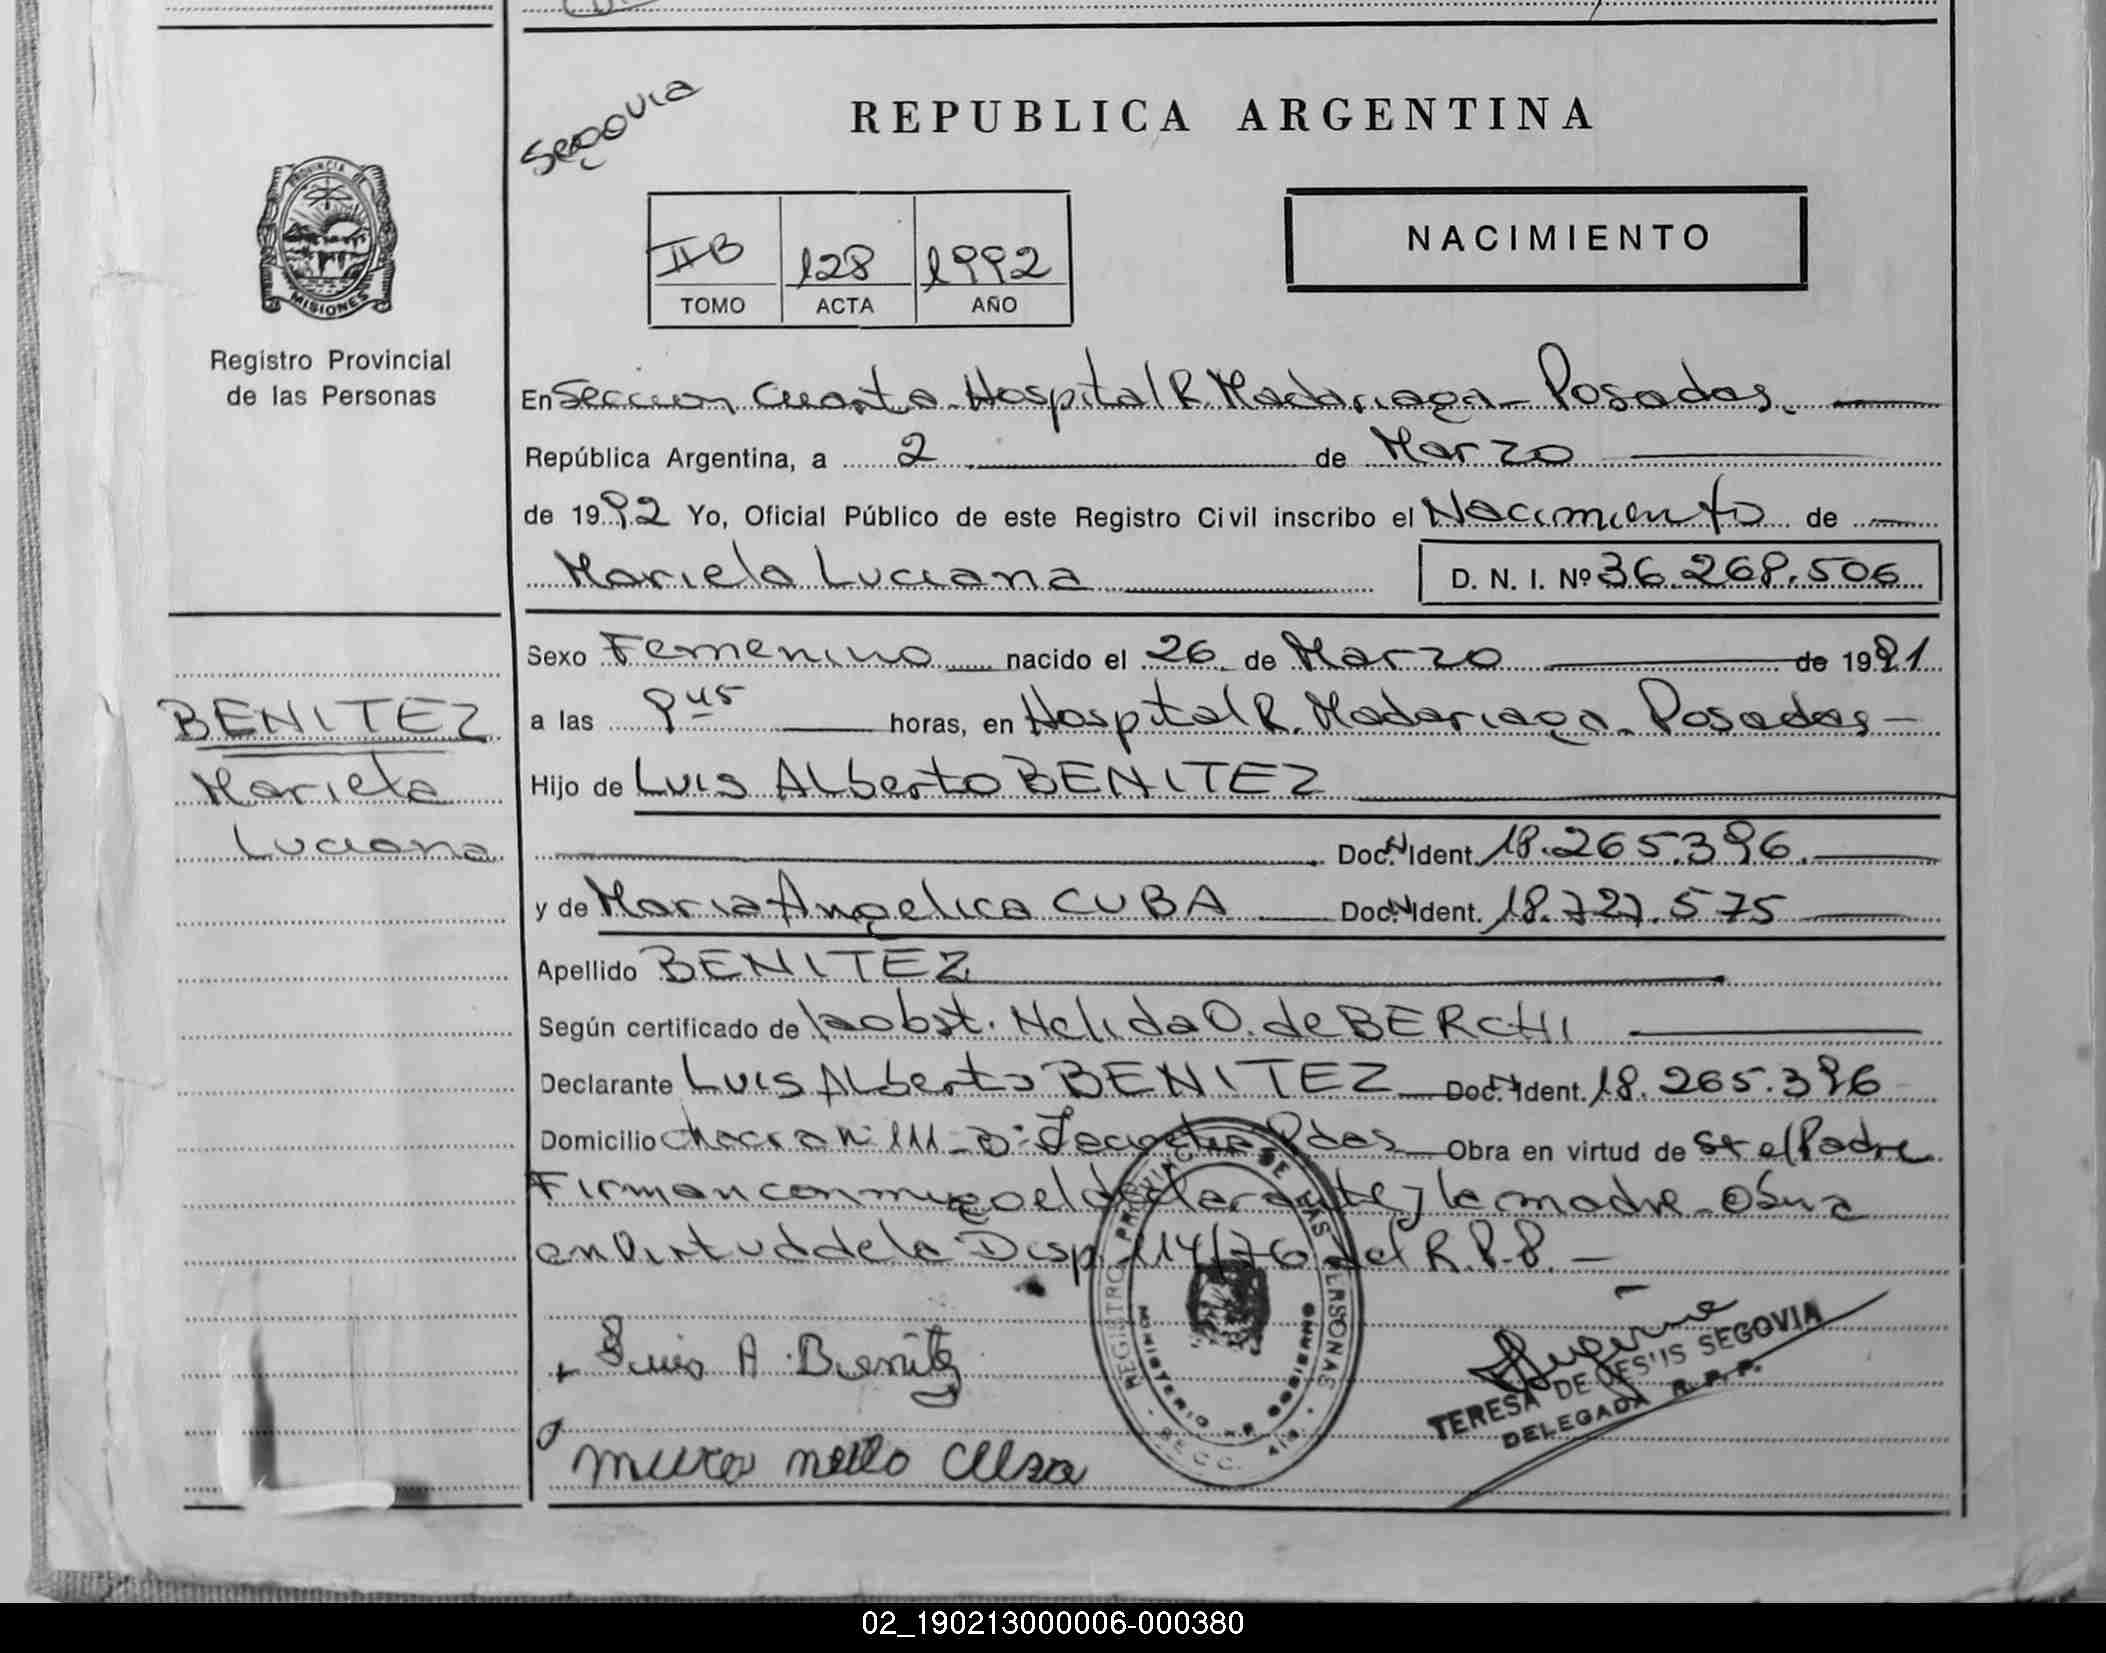 Segovia
REPUBLICA ARGENTINA
NACIMIENTO
II B 128 1992
TOMO ACTA AÑO
PROVINCIA DE MISIONES
Registro Provincial
de las Personas
En Seccion Cuarta - Hospital R. Madariaga - Posadas.
República Argentina, a 2 de Marzo
de 1992 Yo, Oficial Público de este Registro Civil inscribo el Nacimiento de
Mariela Luciana D. N. I. Nº 36.268.506
Sexo Femenino nacido el 26 de Marzo de 1991
a las 9 45 horas, en Hospital R. Madariaga - Posadas -
Hijo de Luis Alberto BENITEZ
Doc. N Ident. 18.265.396.
y de Maria Angelica CUBA Doc. N Ident. 18.727.575
Apellido BENITEZ
Según certificado de la obst. Nelida O. de BERCHI
Declarante Luis Alberto BENITEZ Doc. N Ident. 18.265.396
Domicilio chacra Nº 111 - Pdas Obra en virtud de ser el Padre
Firman conmigo el declarante y la madre - Obra
en Virtud de la Disp. 114/76 del R.P.P. -
BENITEZ
Mariela
Luciana
REGISTRO PROVINCIAL DE LAS PERSONAS
MINISTERIO DE GOBIERNO
Luis A. Benitez
TERESA DE JESUS SEGOVIA
DELEGADA R. P. P.
02_190213000006-000380